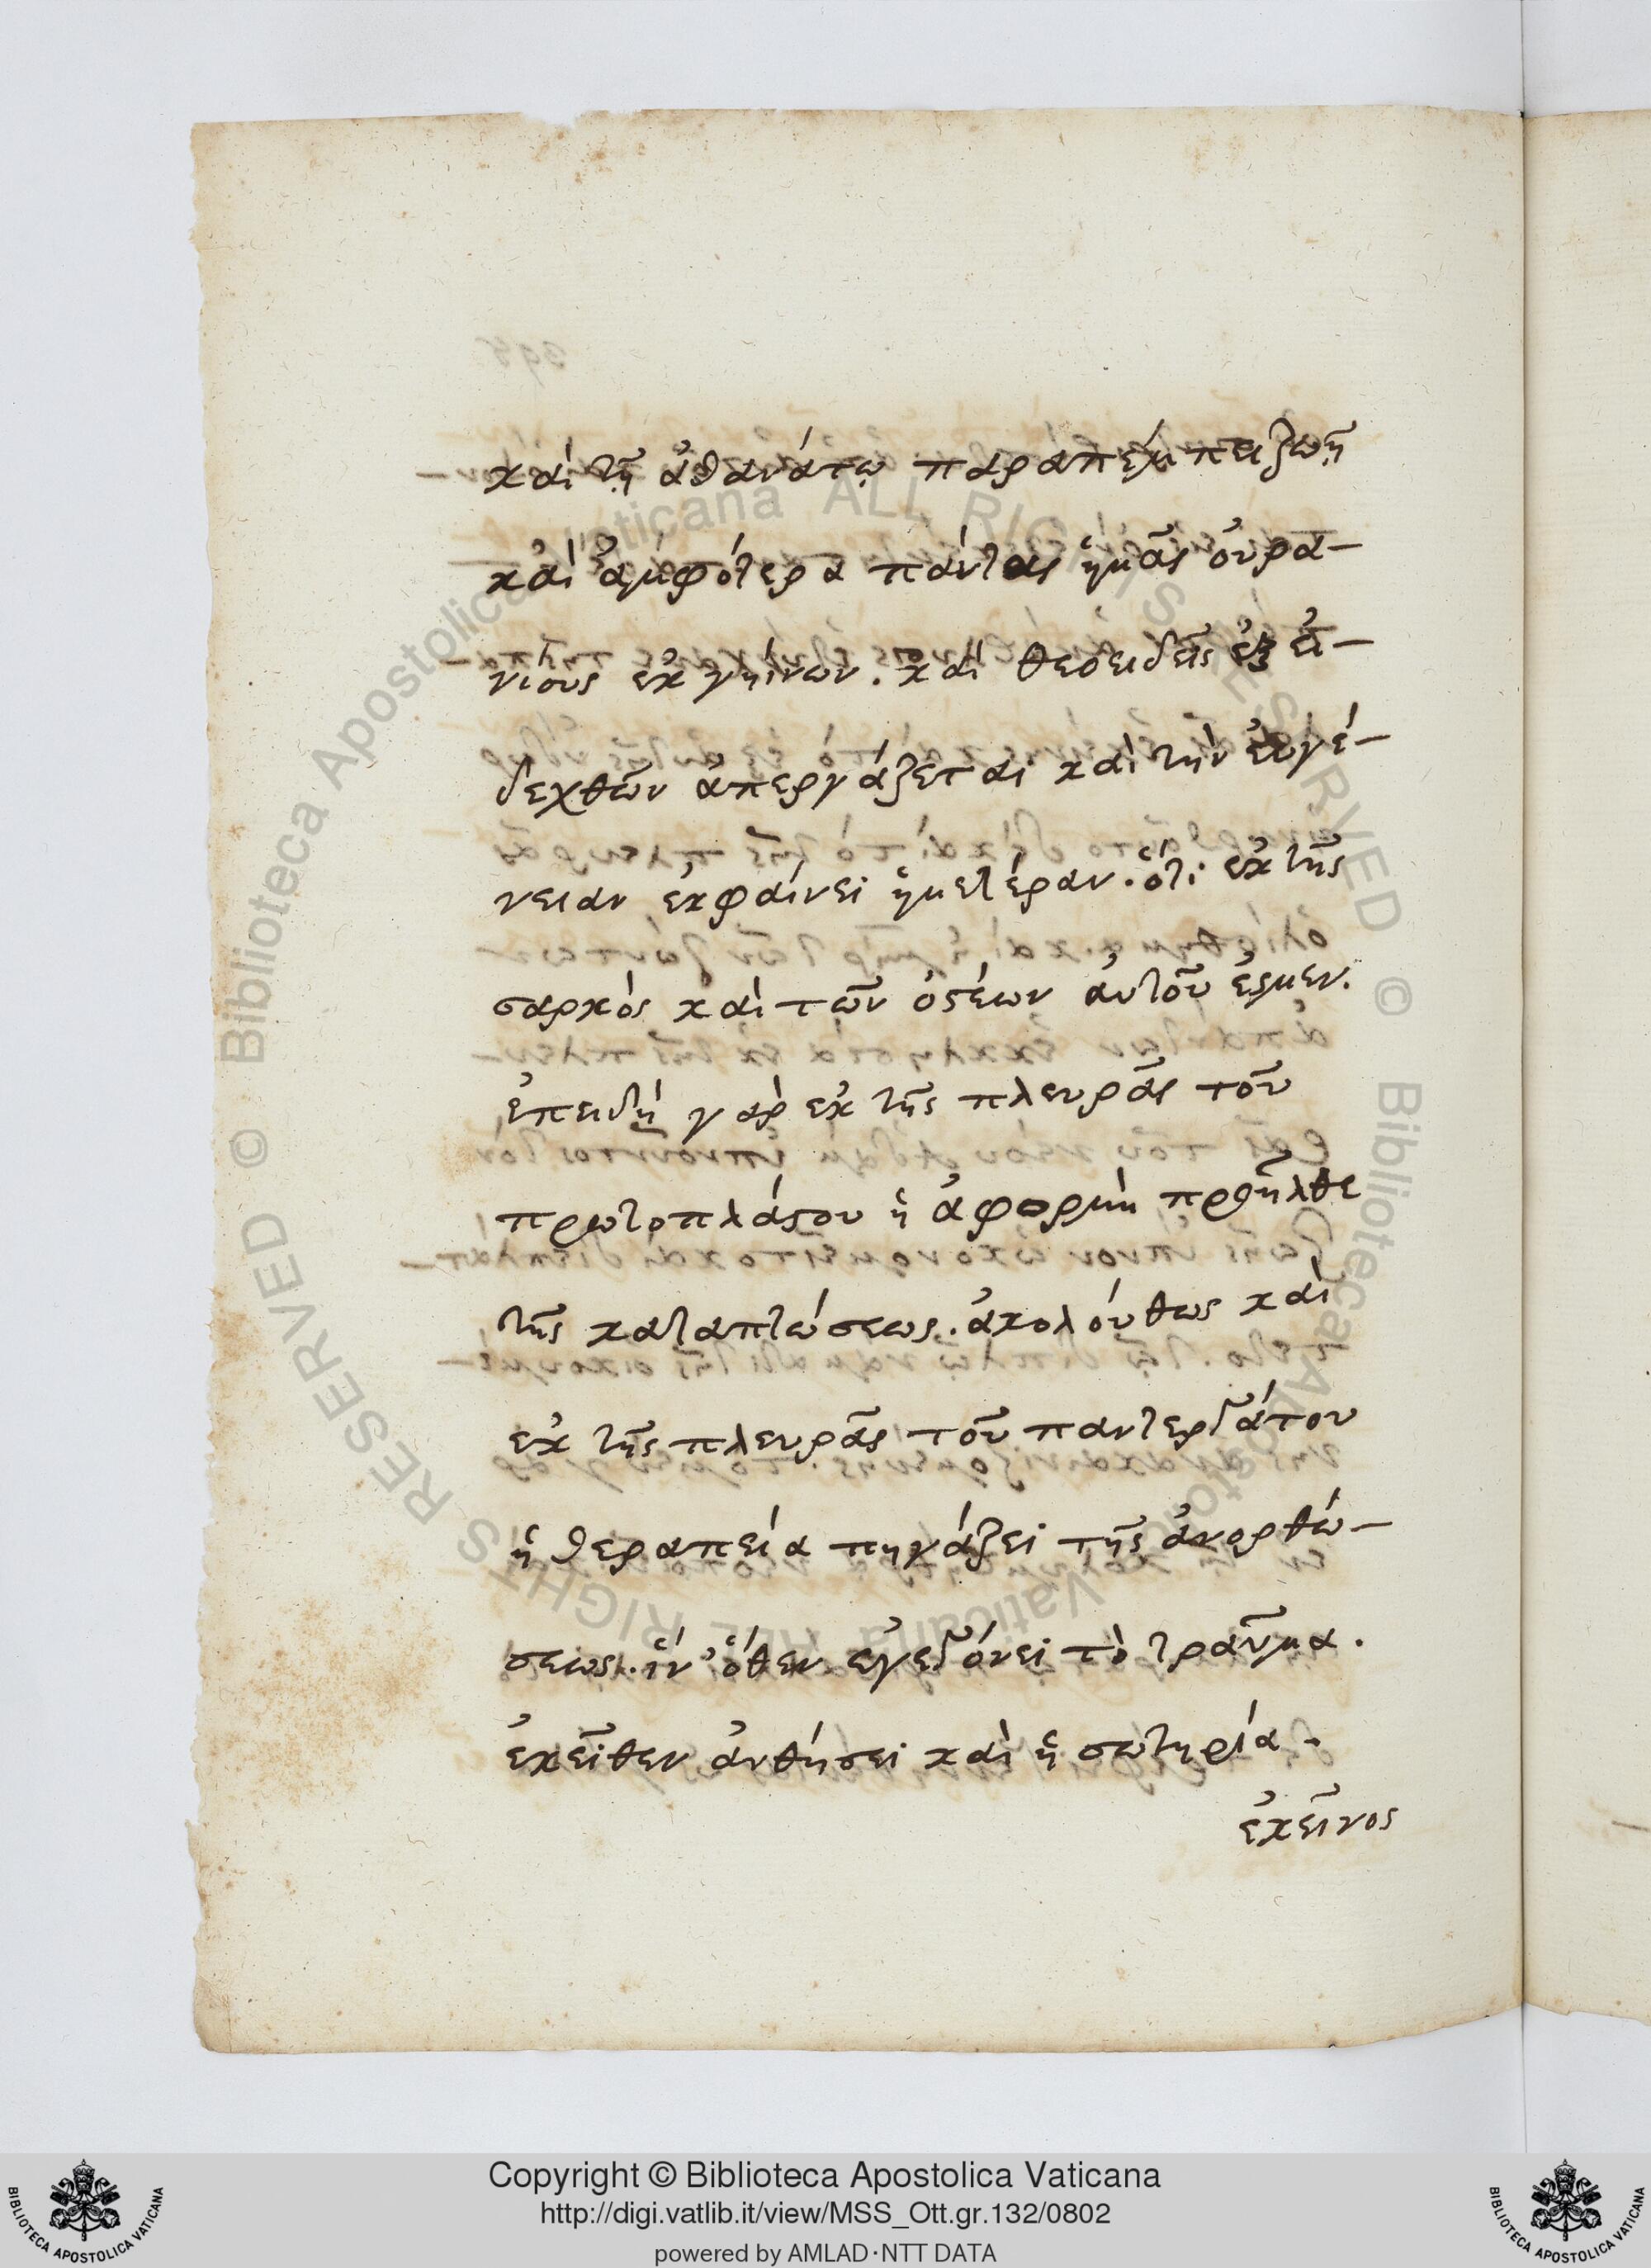 καὶ τῇ ἀθανάτῳ παραπέμπει ζωῇ
καὶ ἀμφότερα πάντας ἡμᾶς οὐρα-
νίους ἐκ γηίνων. καὶ θεοειδεῖς ἐξ εἰ-
δεχθῶν ἀπεργάζεται καὶ τὴν εὐγέ-
νειαν ἐκφαίνει ἡμετέραν. ὅτι ἐκ τῆς
σαρκὸς καὶ τῶν ὀϛέων αὐτοῦ ἐσμεν.
ἐπειδὴ γὰρ ἐκ τῆς πλευρᾶς τοῦ
πρωτοπλάϛου ἡ ἀφορμὴ προῆλθε
τῆς καταπτώσεως. ἀκολούθως καὶ
ἐκ τῆς πλευρᾶς τοῦ παντεργάτου
ἡ θεραπεία πηγάζει τῆς ἀνορθώ-
σεως. ἵν' ὅθεν ἐγεγόνει τὸ τραῦμα.
ἐκεῖθεν ἀνθήσει καὶ ἡ σωτηρία.
ἐκεῖνος
Copyright © Biblioteca Apostolica Vaticana
http://digi.vatlib.it/view/MSS_Ott.gr.132/0802
powered by AMLAD·NTT DATA
BIBLIOTECA APOSTOLICA VATICANA
BIBLIOTECA APOSTOLICA VATICANA